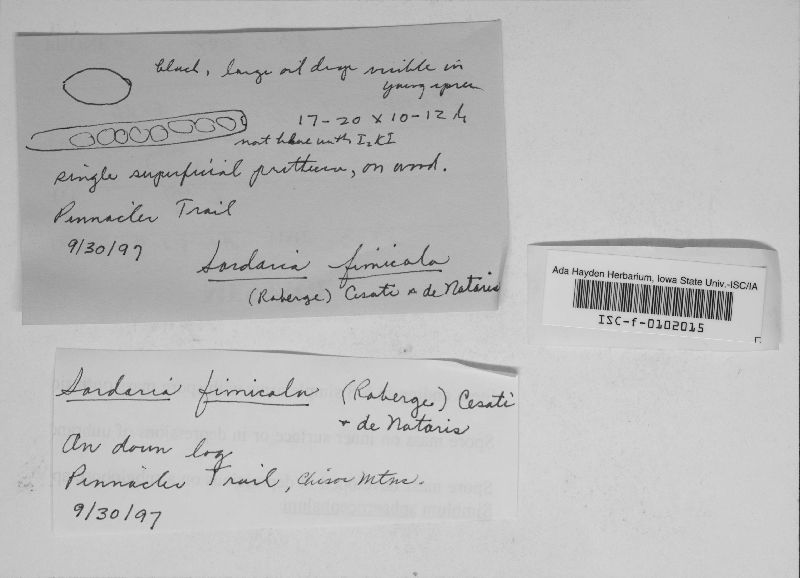 black, large oil drop visible in
young spores
17-20 x 10-12 µ
not blue with I2KI
single superficial perithecia, on wood.
Pinnacles Trail
9/30/97
Sordaria fimicola
(Roberge) Cesati & de Notaris
Ada Hayden Herbarium, Iowa State Univ.-ISC/IA
ISC-f-0102015
Sordaria fimicola (Roberge) Cesati
& de Notaris
On down log
Pinnacles Trail, Chisos Mtns.
9/30/97
Spore mass on inner surface or in depressions of
Spore mass